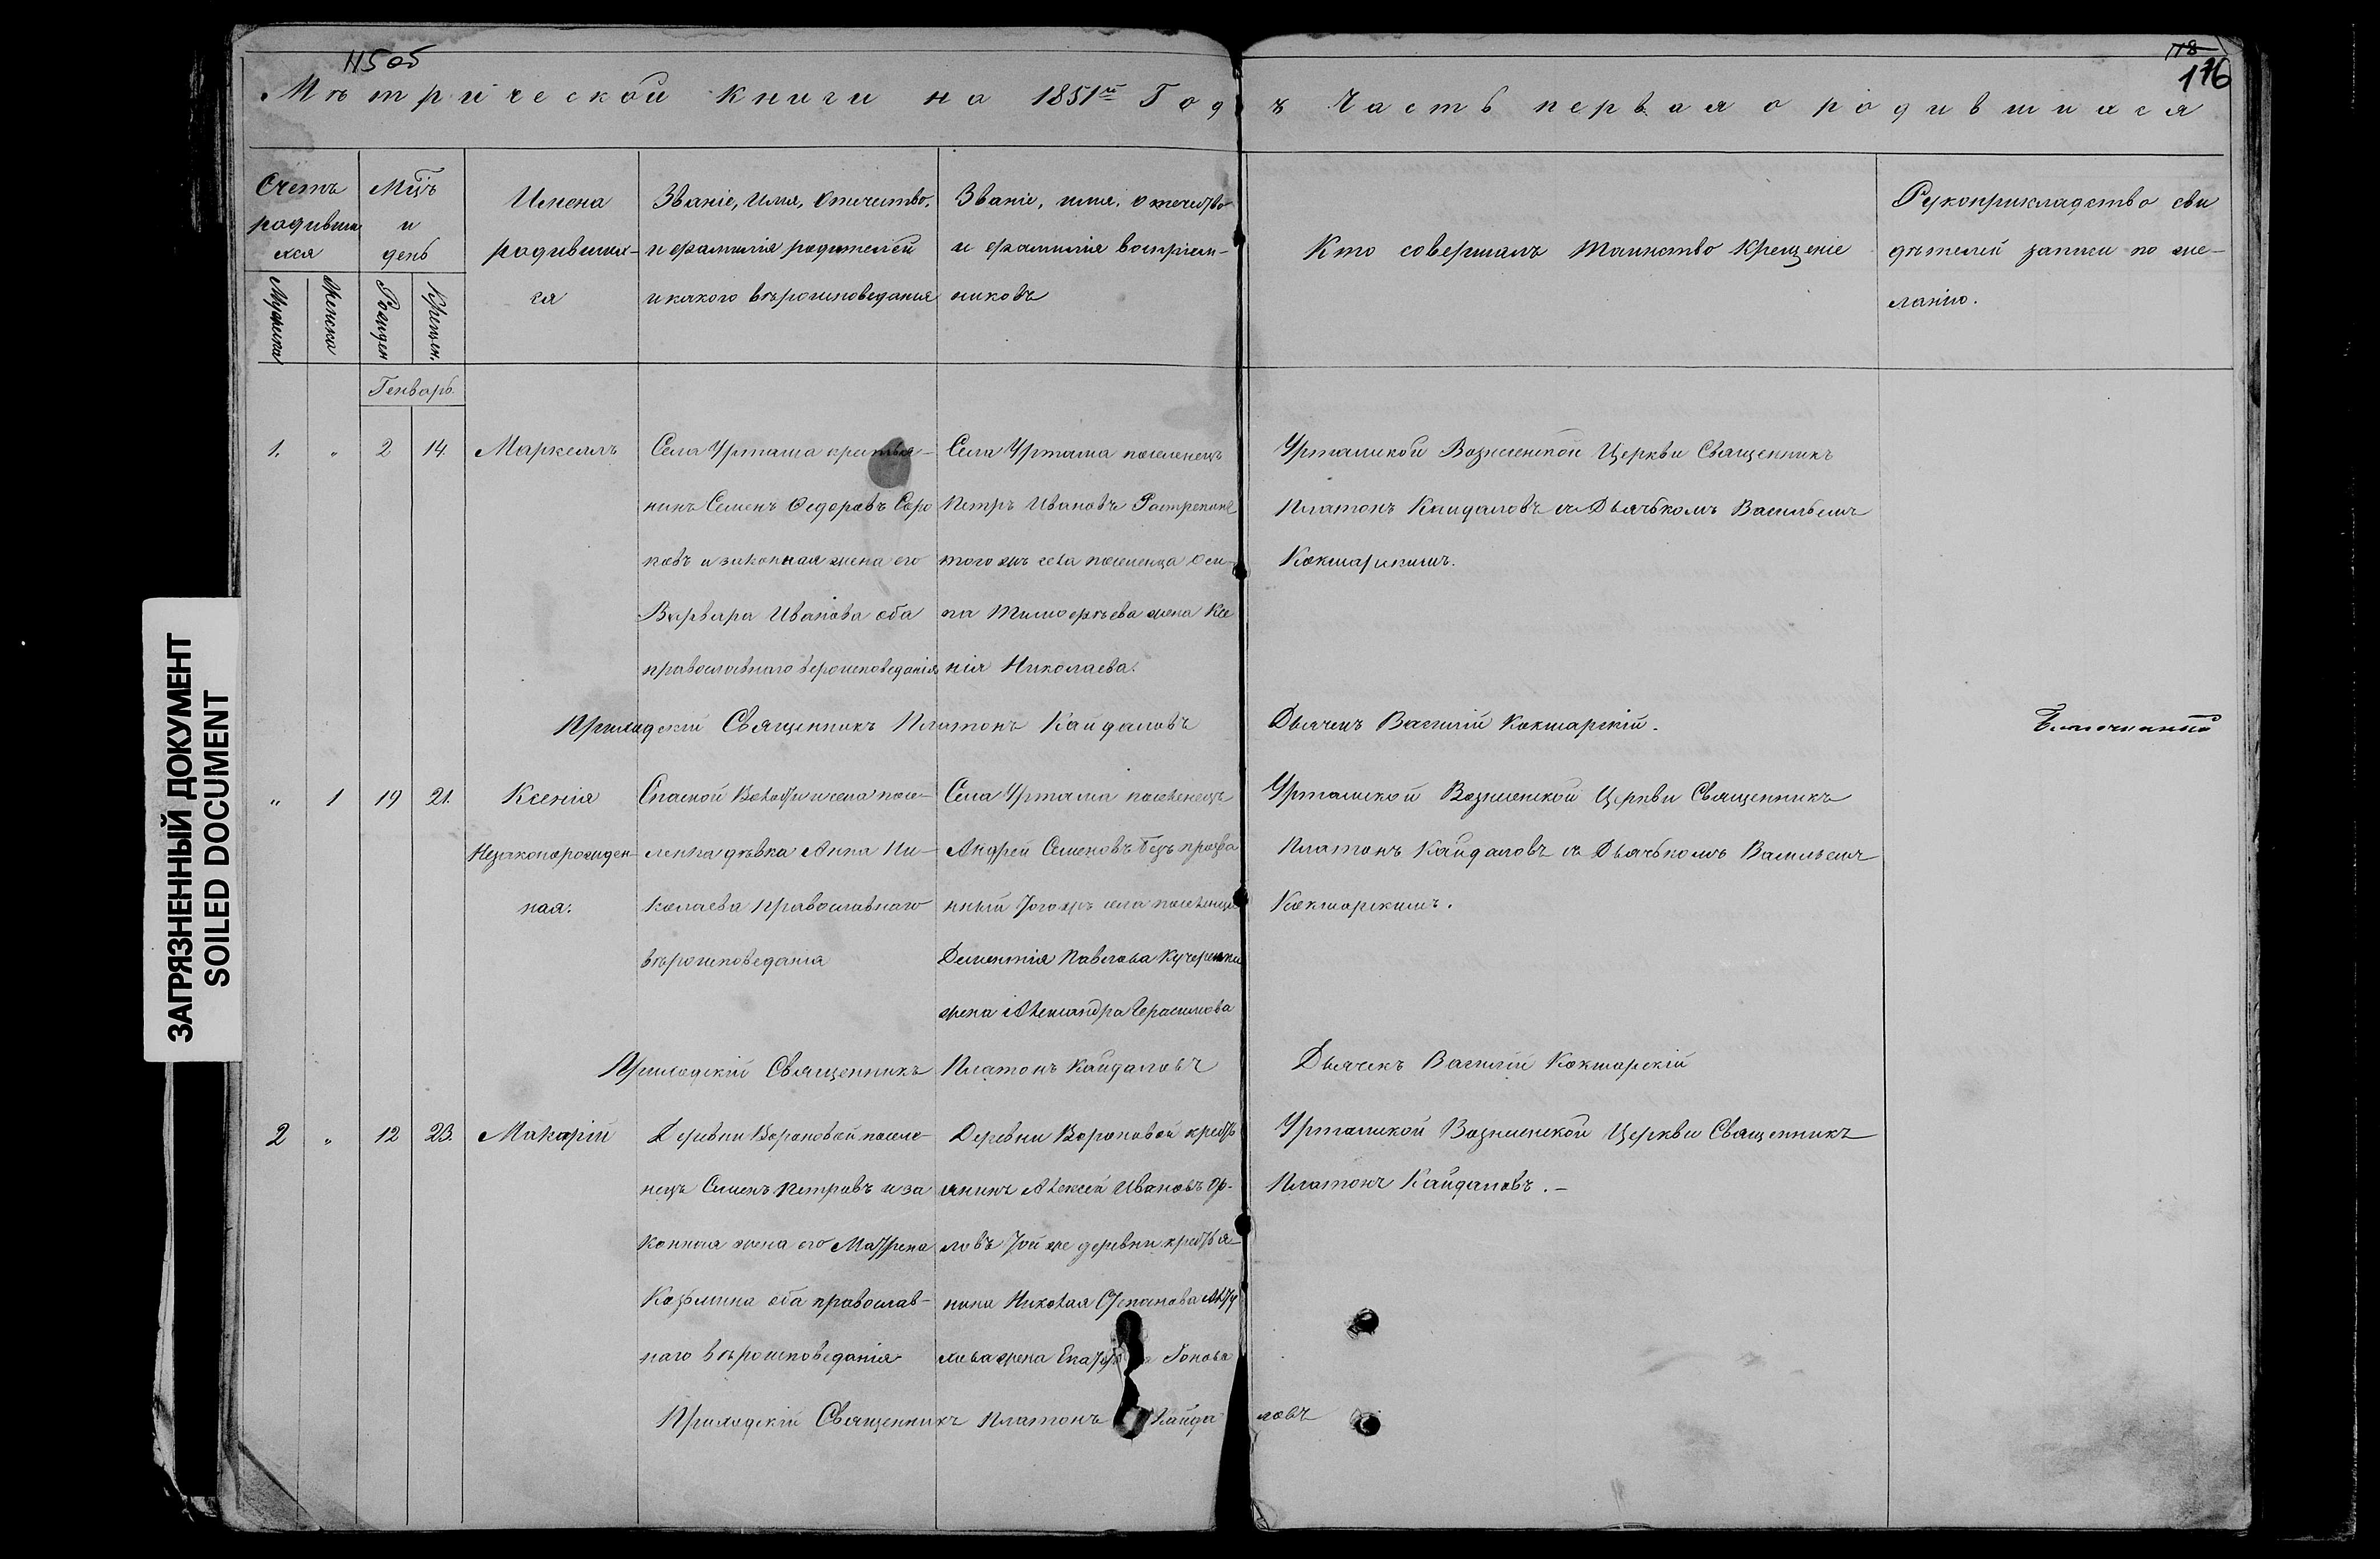 115 об
118
116
Мѣтрической книги на 1851й Годъ Часть первая о родившихся
Счетъ родивши хся
Мужеска
Женска
Мцъ и день
Рожден
Крещен.
Имена родивших- ся
Званіе, Имя, Отечество, и фамилія родителей и какого вѣроисповеданія
Званіе, имя, отечество и фамилія воспріем- никовъ
Кто совершалъ Таинство Крещеніе
Рукоприкладство сви дѣтелей записи по же- ланію.
Генварь.
1. " 2 14. Маркеллъ
Села Уртама крестья-
нинъ Семенъ Федоровъ
и законная жена его
Варвара Иванова оба
православнаго вероисповеданія
Села Уртама поселенецъ
Петръ Ивановъ
того жъ села поселенца Оси-
па Тимофѣева жена Ксе
нія Николаева.
Уртамской Вознесенской Церкви Священникъ
Платонъ Кайдаловъ съ Дьячькомъ Васильемъ
Кокшарскимъ.
Приходскій Священникъ Платонъ Кайдаловъ
Дьячекъ Василій Кокшарскій.
" 1 19 21. Ксенія
Незаконорожден-
ная.
Спаской Волости села посе-
ленка дѣвка Анна Ни-
колаева православнаго
вѣроисповеданія
Села Уртама поселенецъ
Андрей Семеновъ безъ прозва
нный того жъ села поселенца
Дементія Павлова
жена Александра Герасимова
Уртамской Вознесенской Церкви Священникъ
Платонъ Кайдаловъ съ Дьячькомъ Васильемъ
Кокшарскимъ.
Приходскій Священникъ Платонъ Кайдаловъ
Дьячекъ Василій Кокшарскій
2 " 12 23. Макарій
Деревни Вороновой поселе-
нецъ Семенъ Петровъ и за
конная жена его Матрена
Козьмина оба православ-
наго вѣроисповеданія
Деревни Вороновой кресть
янинъ Алексей Ивановъ Ор-
ловъ той же деревни крестья-
нина Николая Степанова
жена
Уртамской Вознесенской Церкви Священникъ
Платонъ Кайдаловъ.-
Приходскій Священникъ Платонъ Кайда ловъ
ЗАГРЯЗНЕННЫЙ ДОКУМЕНТ
SOILED DOCUMENT